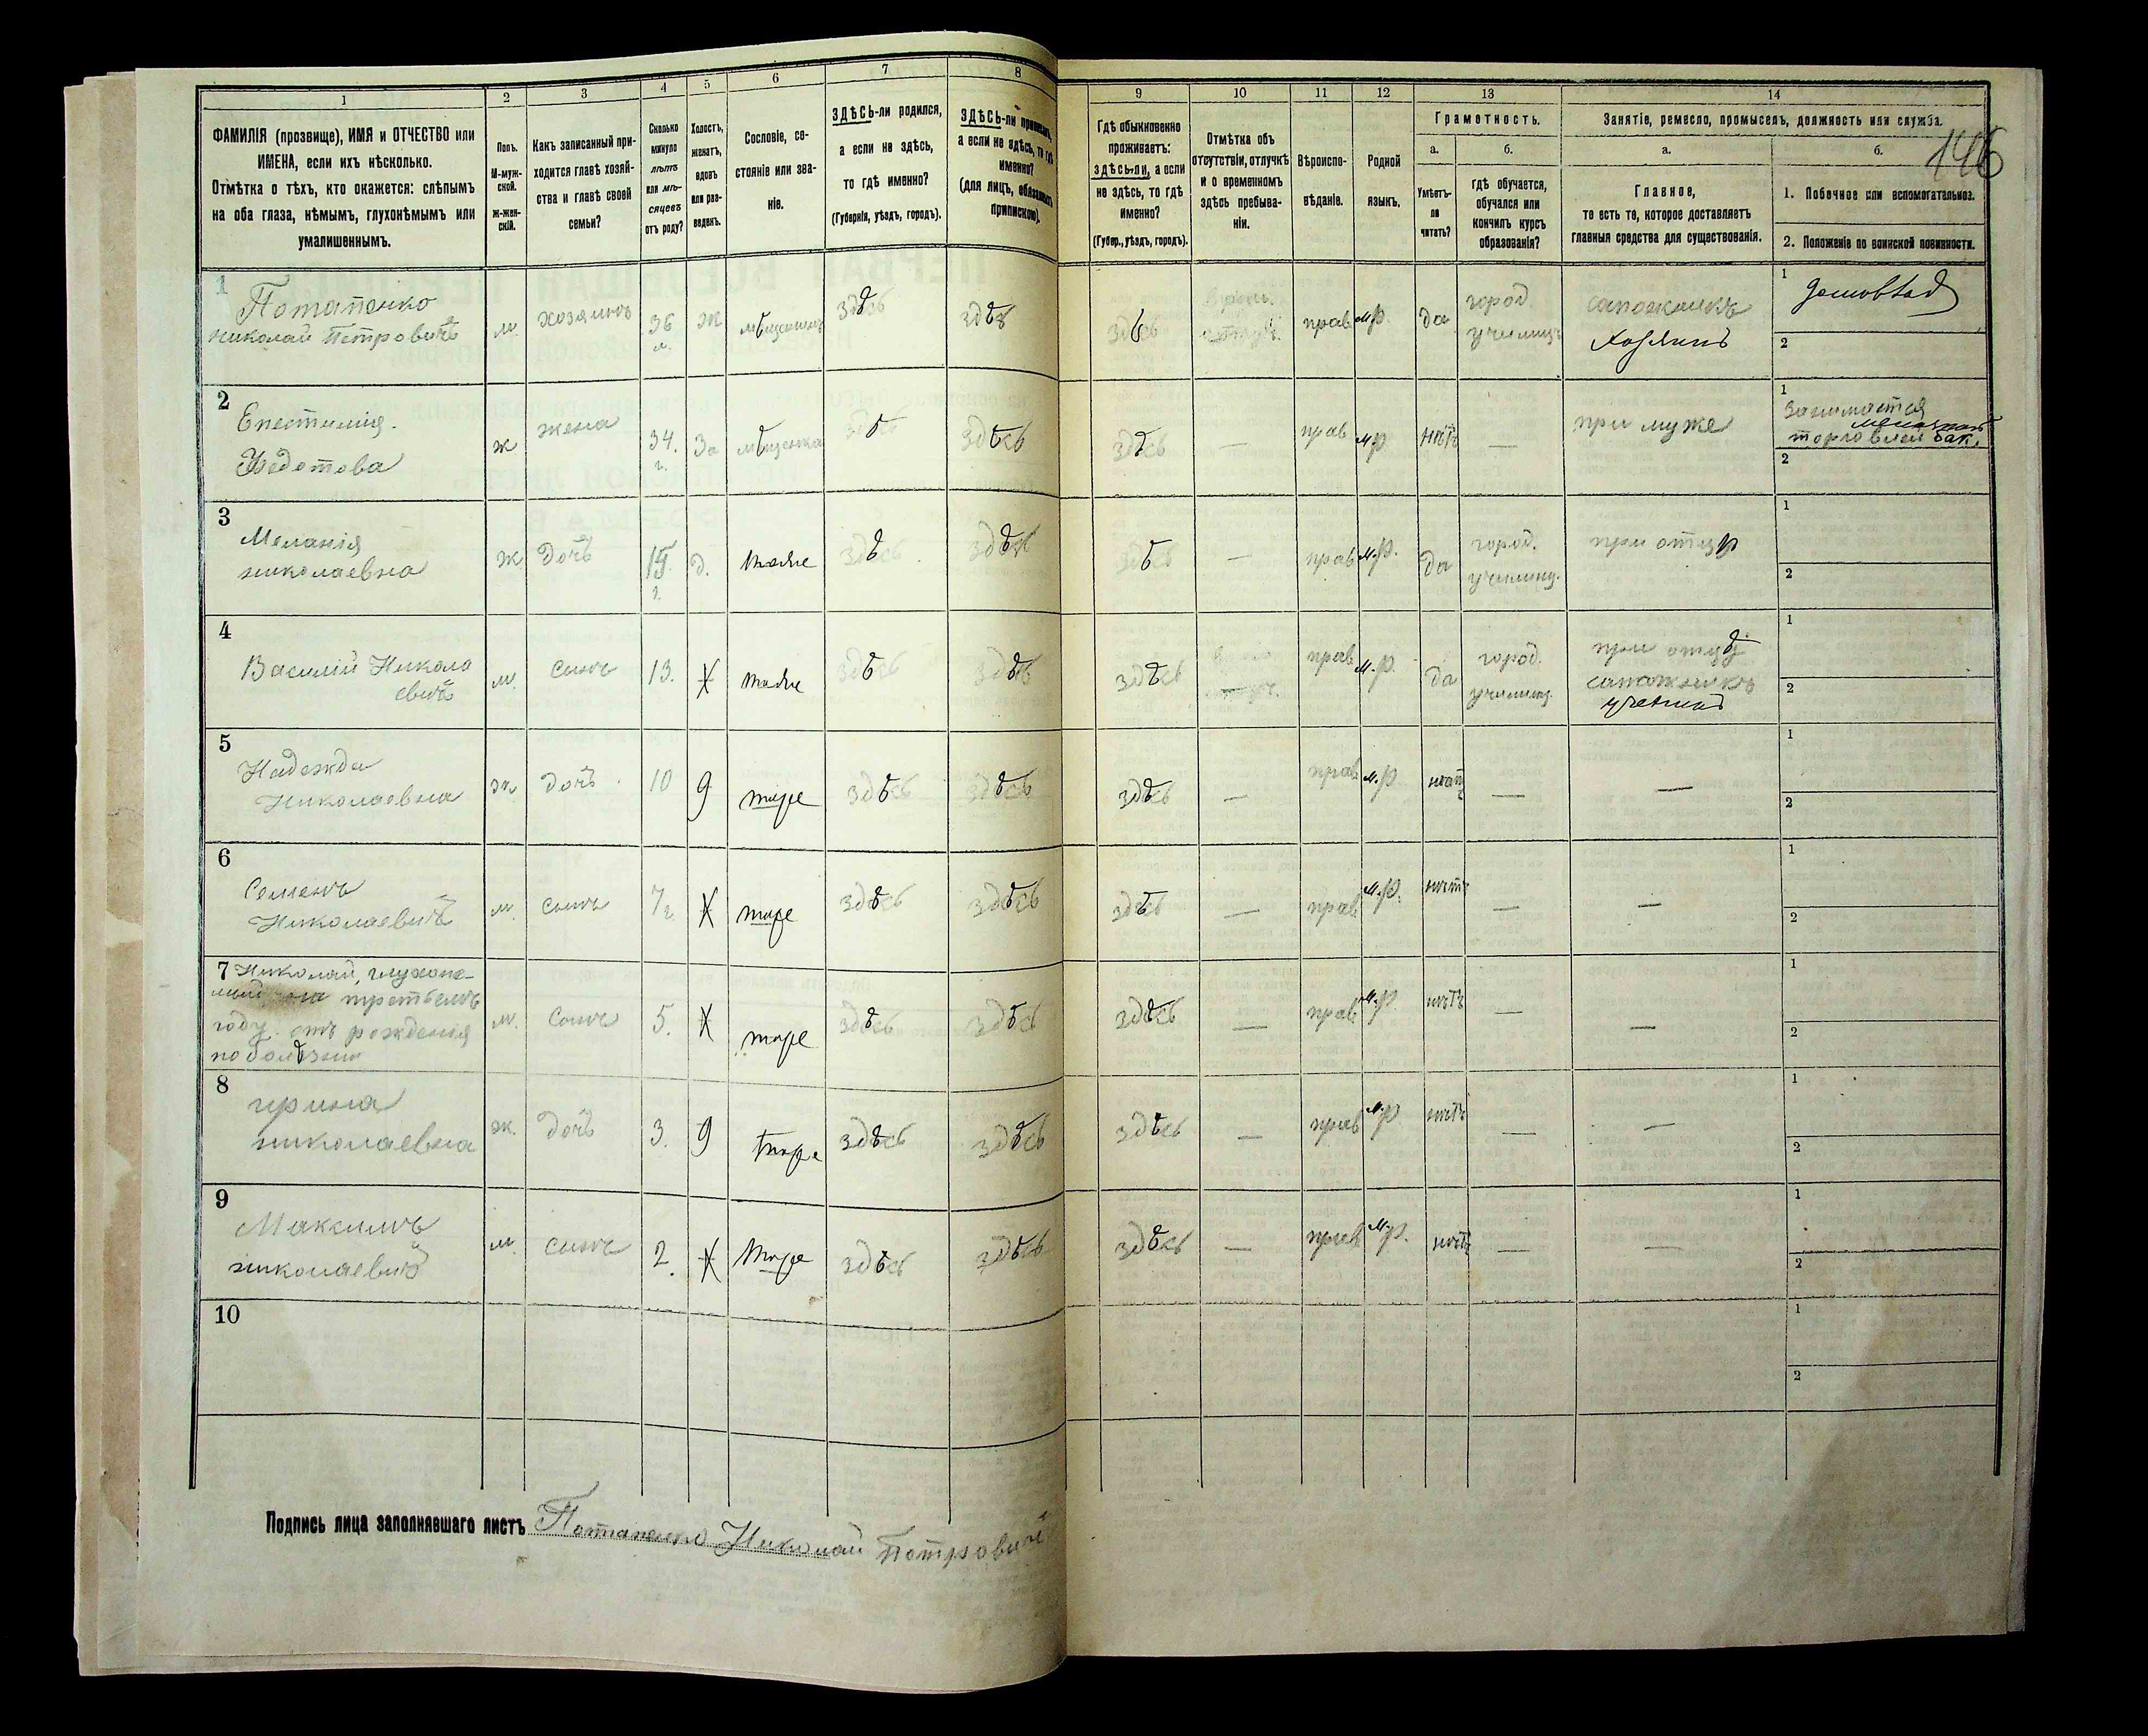 146
1
2
3
4
5
6
7
8
9
10
11
12
13
14
ФАМИЛІЯ (прозвище), ИМЯ и ОТЧЕСТВО или
ИМЕНА, если ихъ нѣсколько.
Отмѣтка о тѣхъ, кто окажется: слѣпымъ
на оба глаза, нѣмымъ, глухонѣмымъ или
умалишеннымъ.
Полъ.
М-муж-
ской.
Ж-жен-
скій.
Какъ записанный при-
ходится главѣ хозяй-
ства и главѣ своей
семьи?
Сколько
минуло
лѣтъ
или мѣ-
сяцевъ
отъ роду?
Холостъ,
женатъ,
вдовъ
или раз-
веденъ.
Сословіе, со-
стояніе или зва-
ніе.
ЗДѢСЬ-ли родился,
а если не здѣсь,
то гдѣ именно?
(Губернія, уѣздъ, городъ).
ЗДѢСЬ-ли приписанъ,
а если не здѣсь, то гдѣ
именно?
(для лицъ, обязанныхъ
припискою).
Гдѣ обыкновенно
проживаетъ:
здѣсь-ли, а если
не здѣсь, то гдѣ
именно?
(Губер., уѣздъ, городъ).
Отмѣтка объ
отсутствіи, отлучкѣ
и о временномъ
здѣсь пребыва-
ніи.
Вѣроиспо-
вѣданіе.
Родной
языкъ.
Грамотность.
а.
Умѣетъ-
ли
читать?
б.
гдѣ обучается,
обучался или
кончилъ курсъ
образованія?
Занятіе, ремесло, промыселъ, должность или служба.
а.
Главное,
то есть то, которое доставляетъ
главныя средства для существованія.
б.
1. Побочное или вспомогательное.
2. Положеніе по воинской повинности.
1
Потапенко
николай Петровичъ
м
хозяинъ
36
л.
ж
мѣщанинъ
здѣсь
здѣсь
здѣсь
прав
м.р.
да
город.
училищ.
сапожникъ
хозяинъ
1
домовлад
2
2
Епестимия.
Федотова
ж
жена
34.
г.
За
мѣщанка
здѣсь
здѣсь
здѣсь
—
прав
м.р.
нѣтъ
—
при муже
1 Занимается
торговлей бак.
2
3
Меланія
николаевна
ж
дочъ
15
г.
д.
тоже
здѣсь
здѣсь
здѣсь
—
прав
м.р.
да
город.
училищ.
при отцѣ
1
2
4
Василій Никола
евичъ
м.
сынъ
13.
х
тоже
здѣсь
здѣсь
здѣсь
прав
м.р.
да
город.
училищ.
при отцѣ
сапожникъ
ученикъ
1
2
5
Надежда
Николаевна
ж
дочъ
10
д
тоже
здѣсь
здѣсь
здѣсь
—
прав
м.р.
нѣтъ
—
—
1
2
6
Семенъ
Николаевичъ
м.
сынъ
7 г.
х
тоже
здѣсь
здѣсь
здѣсь
—
прав
м.р.
нѣтъ
—
—
1
2
7 Николай, глухоне-
мый на третьемъ
году отъ рождения
по болѣзни
м.
сынъ
5.
х
тоже
здѣсь
здѣсь
здѣсь
—
прав
м.р.
нѣтъ
—
—
1
2
8
ирина
николаевна
ж.
дочъ
3.
д
тоже
здѣсь
здѣсь
здѣсь
—
прав
м.р.
нѣтъ
—
—
1
2
9
Максимъ
николаевичъ
м.
сынъ
2.
х
тоже
здѣсь
здѣсь
здѣсь
—
прав
м.р.
нѣтъ
—
—
1
2
10
1
2
Подпись лица заполнявшаго листъ Потапенко Николай Петровичъ